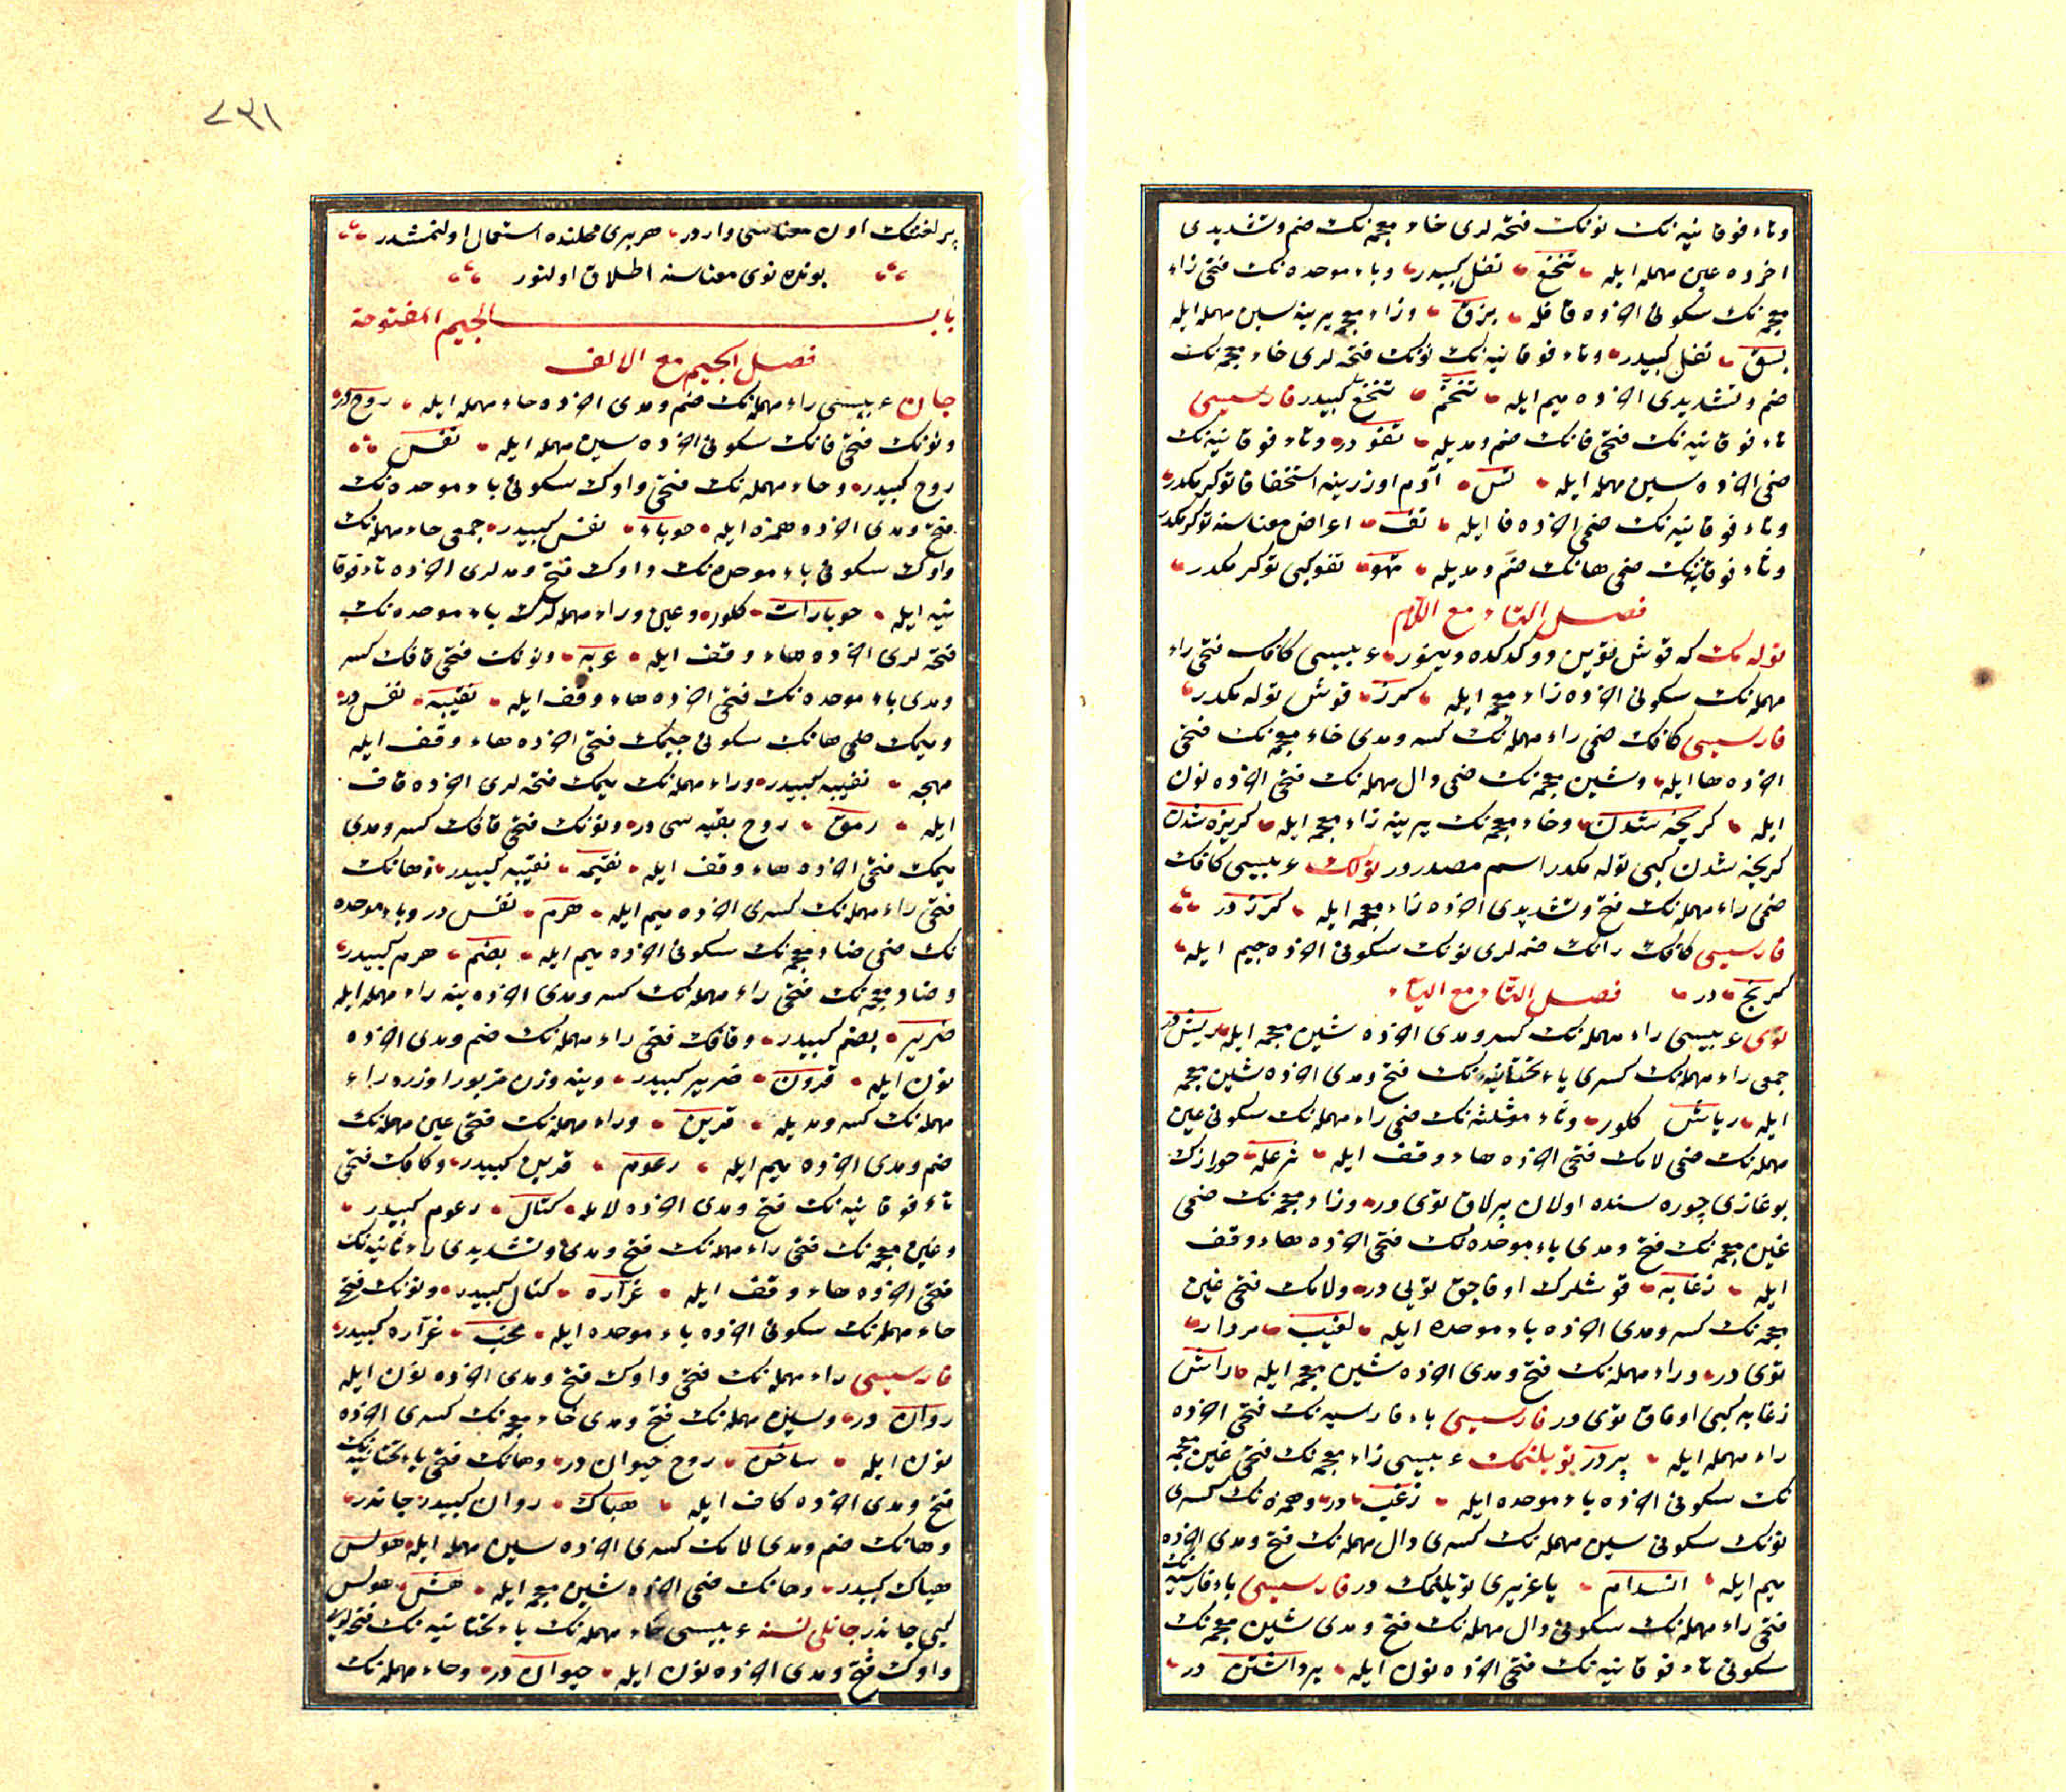 وتاء فوقانیه نك نونك فتحه لری خاء معجمه نك ضم وتشدیدی
اخرده عین مهمله ایله تنخّع تفل كبیدر وباء موحده نك فتحی زاء
معجمه نك سكونی اخرده قافله بزق وزاء معجمه یرینه سین مهمله ایله
بسق تفل كبیدر وتاء فوقانیه نك نونك فتحه لری خاء معجمه نك
ضم وتشدیدی اخرده میم ایله تنخّم تنخّع كبیدر فارسیسی
تاء فوقانیه نك فتحی فانك ضم ومدیله تفو در وتاء فوقانیه نك
ضمی اخرده سین مهمله ایله تس آدم اوزرینه استخفافا توكرمكدر
وتاء فوقانیه نك ضمی اخرده فا ایله تف اعراض معناسنه توكرمكدر
وتاء فوقانیه نك ضمی هانك ضم ومدیله تهو تفو كبی توكرمكدر
فصل التاء مع اللام
توله مك كه قوش تویین دوكدكده دینور عربیسی كافك فتحی راء
مهمله نك سكونی اخرده زاء معجمه ایله كرز قوش توله مكدر
فارسیسی كافك ضمی راء مهمله نك كسر ومدی خاء معجمه نك فتحی
اخرده ها ایله وشین معجمه نك ضمی دال مهمله نك فتحی اخرده نون
ایله كریخه شدن وخاء معجمه نك یرینه زاء معجمه ایله كریزه شدن
كریخه شدن كبی توله مكدر اسم مصدردر تولك عربیسی كافك
ضمی راء مهمله نك فتح وتشدیدی اخرده زاء معجمه ایله كرّز در
فارسیسی كافك رانك ضمه لری نونك سكونی اخرده جیم ایله
كرنج در فصل التاء مع الیاء
توی عربیسی راء مهمله نك كسر ومدی اخرده شین معجمه ایله ریش در
جمعی راء مهمله نك كسری یاء تحتانیه نك فتح ومدی اخرده شین معجمه
ایله ریاش كلور وثاء مثلثه نك ضمی راء مهمله نك سكونی عین
مهمله نك ضمی لامك فتحی اخرده هاء وقف ایله ثرعله خورازك
بوغازی چوره سنده اولان پرلاق توی در وزاء معجمه نك ضمی
غین معجمه نك فتح ومدی باء موحده نك فتحی اخرده هاء وقف
ایله زغابه قوشلرك اوفاجق تویی در ولامك فتحی غین
معجمه نك كسر ومدی اخرده باء موحده ایله لغیب مردار
توی در وراء مهمله نك فتح ومدی اخرده شین معجمه ایله راش
زغابه كبی اوفاق توی در فارسیسی باء فارسیه نك فتحی اخرده
راء مهمله ایله پر در تویلنمك عربیسی زاء معجمه نك فتحی غین معجمه
نك سكونی اخرده باء موحده ایله زغب در وهمزه نك كسری
نونك سكونی سین مهمله نك كسری دال مهمله نك فتح ومدی اخرده
میم ایله انسدام یاغریری تویلنمك در فارسیسی باء فارسیه نك
فتحی راء مهمله نك سكونی دال مهمله نك فتح ومدی شین معجمه نك
سكونی تاء فوقانیه نك فتحی اخرده نون ایله پرداشتن در
٢٣١
بر لغتك اون معناسی واردر هر بری محلنده استعمال اولنمشدر
بونلر توی معناسنه اطلاق اولنور
باب الجیم المفتوحة
فصل الجیم مع الالف
جان عربیسی راء مهمله نك ضم ومدی اخرده حاء مهمله ایله روح در
ونونك فتحی فانك سكونی اخرده سین مهمله ایله نفس
روح كبیدر وحاء مهمله نك فتحی واوك سكونی باء موحده نك
فتح ومدی اخرده همزه ایله حوباء نفس كبیدر جمعی حاء مهمله نك
واوك سكونی باء موحده نك واوك فتح ومد لری اخرده تاء فوقا
نیه ایله حوباوات كلور وعین وراء مهمله لرك باء موحده نك
فتحه لری اخرده هاء وقف ایله عربه ونونك فتحی قافك كسر
ومدی باء موحده نك فتحی اخرده هاء وقف ایله نقیبه نفس در
ومیمك ضمی هانك سكونی جیمك فتحی اخرده هاء وقف ایله
مهجه نقیبه كبیدر وراء مهمله نك میمك فتحه لری اخرده قاف
ایله رمق روح بقیه سی در ونونك فتحی قافك كسر ومدی
میمك فتحی اخرده هاء وقف ایله نقیمه نقیبه كبیدر وهانك
فتحی راء مهمله نك كسری اخرده میم ایله هرم نفس در وباء موحده
نك ضمی ضاد معجمه نك سكونی اخرده میم ایله بضم هرم كبیدر
وضاد معجمه نك فتحی راء مهمله نك كسر ومدی اخرده ینه راء مهمله ایله
ضریر بضم كبیدر وقافك فتحی راء مهمله نك ضم ومدی اخرده
نون ایله قرون ضریر كبیدر وینه وزن مزبور اوزره راء
مهمله نك كسر ومدیله قرین وراء مهمله نك فتحی عین مهمله نك
ضم ومدی اخرده میم ایله رعوم قرین كبیدر وكافك فتحی
تاء فوقانیه نك فتح ومدی اخرده لامله كتال رعوم كبیدر
وغین معجمه نك فتحی راء مهمله نك فتح ومدی وتشدیدی راء ثانیه نك
فتحی اخرده هاء وقف ایله غرّاره كتال كبیدر ونونك فتح
حاء مهمله نك سكونی اخرده باء موحده ایله نحب غرّاره كبیدر
فارسیسی راء مهمله نك فتحی واوك فتح ومدی اخرده نون ایله
روان در وسین مهمله نك فتح ومدی خاء معجمه نك كسری اخرده
نون ایله ساخن روح حیوان در وهانك فتحی یاء تحتانیه نك
فتح ومدی اخرده كاف ایله هیاك روان كبیدر جاندر
وهانك ضم ومدی لامك كسری اخرده سین مهمله ایله هولس
هیاك كبیدر وهانك ضمی اخرده شین معجمه ایله هش هولس
كبی جاندر جانلی نسنه عربیسی حاء مهمله نك یاء تحتانیه نك فتحه لری
واوك فتح ومدی اخرده نون ایله حیوان در وحاء مهمله نك